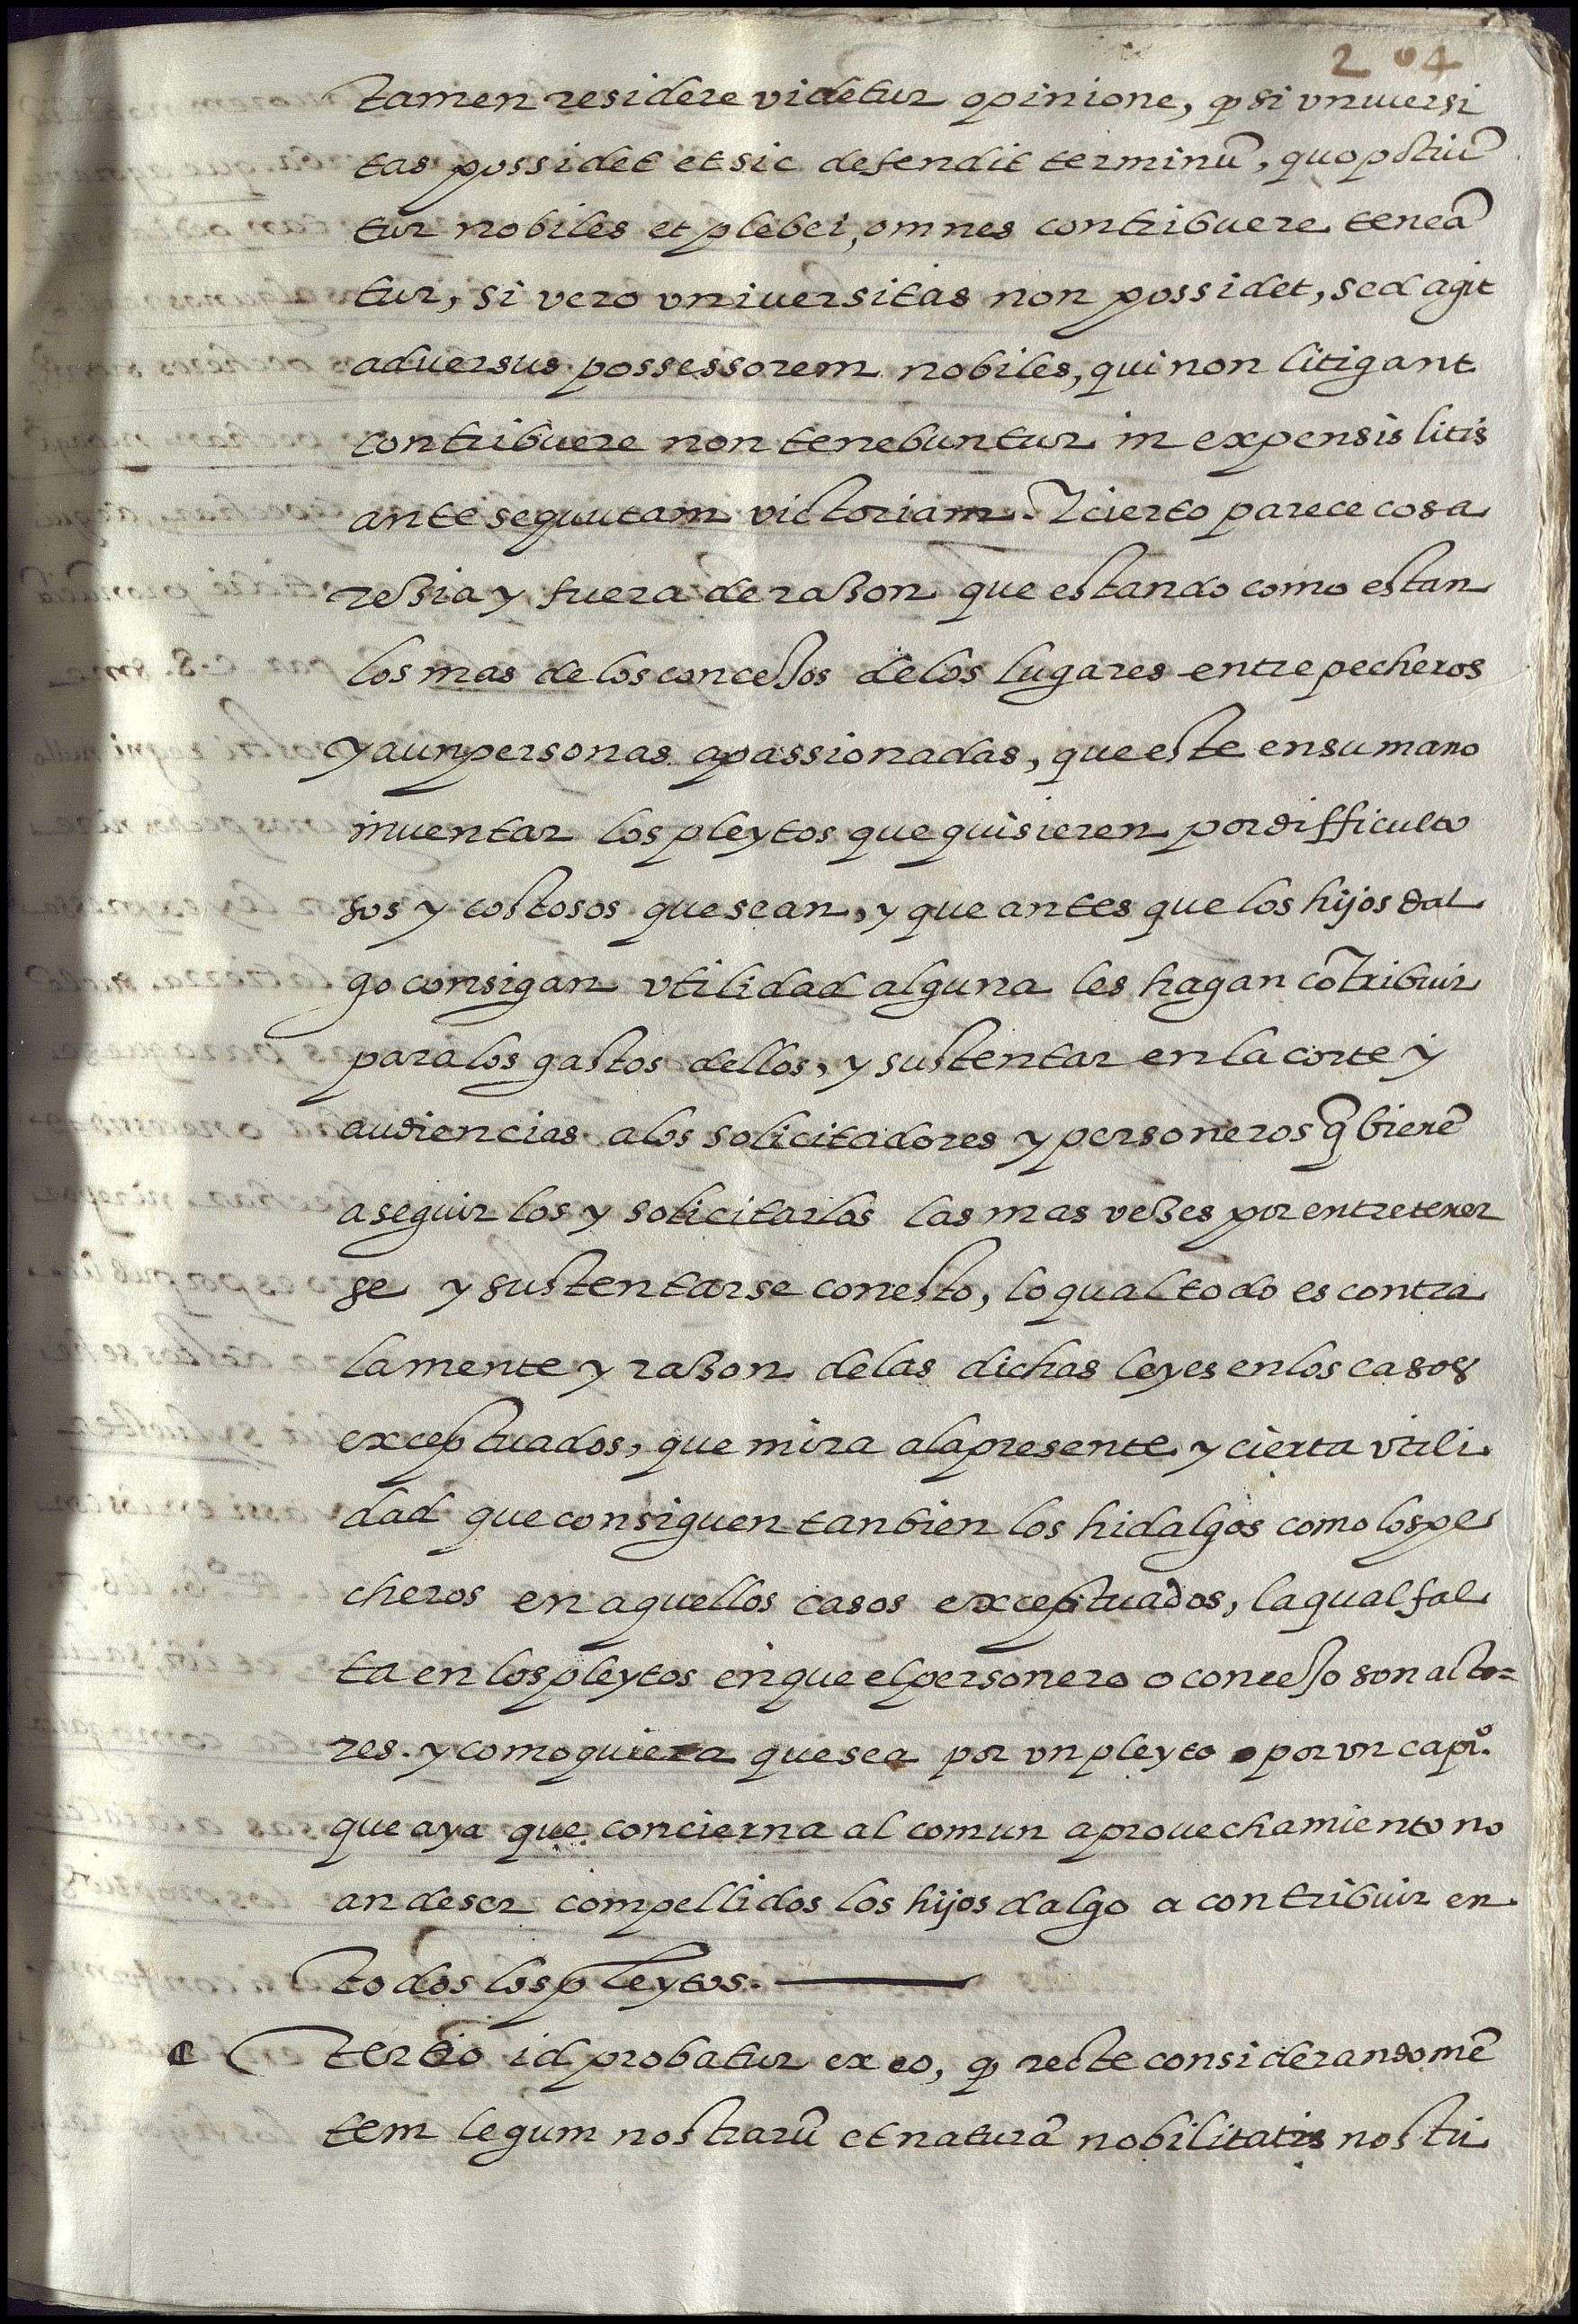 204
tamen residere videtur opinione, ꝙ si vniuersi
tas possidet et sic defendit terminũ, quo potiũ
tur nobiles et plebei, omnes contribuere teneã
tur, si vero vniuersitas non possidet, sed agit
aduersus possessorem nobiles, qui non litigant
contribuere non tenebuntur in expensis litis
ante sequutam victoriam. I cierto parece cosa
rezia y fuera de razon que estando como estan
los mas de los concejos de los lugares entre pecheros
y aun personas apassionadas, que este en su mano
inuentar los pleytos que quisieren por difficulto
sos y costosos que sean, y que antes que los hijos dal
go consigan vtilidad alguna les hagan cõtribuir
para los gastos dellos, y sustentar en la corte y
audiencias a los solicitadores y personeros q̃ bienẽ
a seguir los y solicitarlos las mas vezes por entretener
se y sustentarse con esto, lo qual todo es contra
la mente y razon de las dichas leyes en los casos
exceptuados, que mira a la presente y cierta vtili
dad que consiguen tanbien los hidalgos como los pe
cheros en aquellos casos exceptuados, la qual fal
ta en los pleytos en que el personero o concejo son acto=
res. y como quiera que sea por vn pleyto o por vn capi.º
que aya que concierna al comun aprouechamiento no
an de ser compellidos los hijos dalgo a contribuir en
todos los pleytos.
Tertio id probatur ex eo, ꝙ recte considerando mẽ
tem legum nostrarũ et naturã nobilitatis nostri